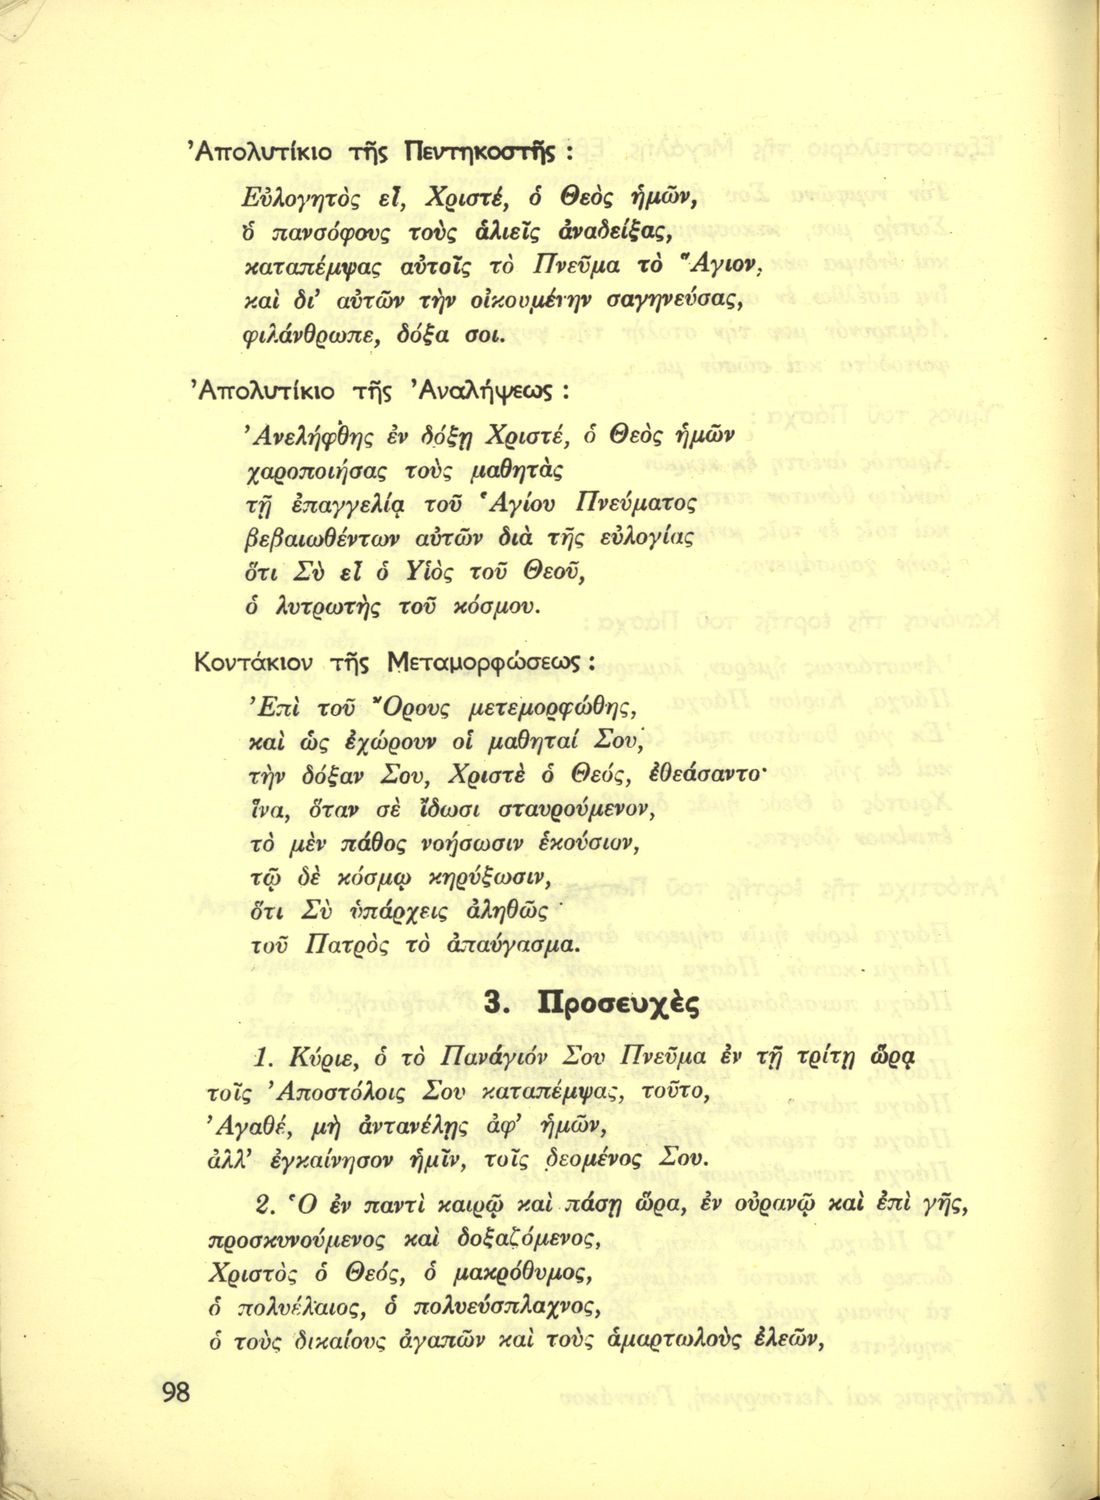 Ἀπολυτίκιο τῆς Πεντηκοστῆς :
Εὐλογητὸς εἶ, Χριστέ, ὁ Θεὸς ἡμῶν,
ὁ πανσόφους τοὺς ἁλιεῖς ἀναδείξας,
καταπέμψας αὐτοῖς τὸ Πνεῦμα τὸ Ἅγιον,
καὶ δι' αὐτῶν τὴν οἰκουμένην σαγηνεύσας,
φιλάνθρωπε, δόξα σοι.
Ἀπολυτίκιο τῆς Ἀναλήψεως :
Ἀνελήφθης ἐν δόξῃ Χριστέ, ὁ Θεὸς ἡμῶν
χαροποιήσας τοὺς μαθητὰς
τῇ ἐπαγγελίᾳ τοῦ Ἁγίου Πνεύματος
βεβαιωθέντων αὐτῶν διὰ τῆς εὐλογίας
ὅτι Σὺ εἶ ὁ Υἱὸς τοῦ Θεοῦ,
ὁ λυτρωτὴς τοῦ κόσμου.
Κοντάκιον τῆς Μεταμορφώσεως :
Ἐπὶ τοῦ Ὄρους μετεμορφώθης,
καὶ ὡς ἐχώρουν οἱ μαθηταί Σου,
τὴν δόξαν Σου, Χριστὲ ὁ Θεός, ἐθεάσαντο·
ἵνα, ὅταν σὲ ἴδωσι σταυρούμενον,
τὸ μὲν πάθος νοήσωσιν ἑκούσιον,
τῷ δὲ κόσμῳ κηρύξωσιν,
ὅτι Σὺ ὑπάρχεις ἀληθῶς
τοῦ Πατρὸς τὸ ἀπαύγασμα.
3. Προσευχὲς
1. Κύριε, ὁ τὸ Πανάγιόν Σου Πνεῦμα ἐν τῇ τρίτῃ ὥρᾳ
τοῖς Ἀποστόλοις Σου καταπέμψας, τοῦτο,
Ἀγαθέ, μὴ ἀντανέλῃς ἀφ' ἡμῶν,
ἀλλ' ἐγκαίνησον ἡμῖν, τοῖς δεομένος Σου.
2. Ὁ ἐν παντὶ καιρῷ καὶ πάσῃ ὥρα, ἐν οὐρανῷ καὶ ἐπὶ γῆς,
προσκυνούμενος καὶ δοξαζόμενος,
Χριστὸς ὁ Θεός, ὁ μακρόθυμος,
ὁ πολυέλαιος, ὁ πολυεύσπλαχνος,
ὁ τοὺς δικαίους ἀγαπῶν καὶ τοὺς ἁμαρτωλοὺς ἐλεῶν,
98